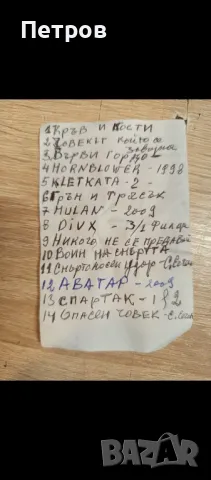 Петров
1 Кръв и кости
2 Човекът който се завърна
3 Върви гордо
4 HORNBLOWER - 1998
5 KLETKATA - 2 -
6 Грън и трясък
7 MULAN - 2009
8 DIVX - 3/1 Филма
9 Никога не се предавай
10 Воин на смъртта
11 Смъртоносен удар -
12 АВАТАР - 2009
13 СПАРТАК - 1 & 2
14 Опасен човек - С. Сегал
БАЗАР